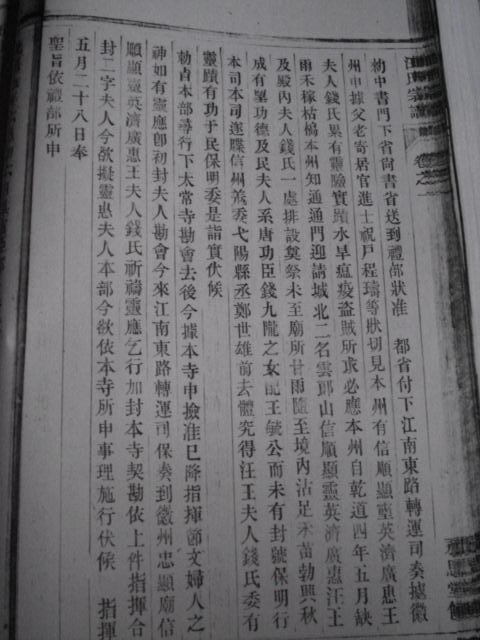 勑中書門下省尚書省送到禮部狀准　都省付下江南東路轉運司奏據徽
州申據父老寄居官進士祝戶程璹等狀切見本州有信順顯靈英濟廣惠王
夫人錢氏累有靈驗實蹟水旱瘟疫盜賊所求必應本州自乾道四年五月缺
雨禾稼枯槁本州知通通門迎請城北二名雲郎山信順顯靈英濟廣惠汪王
及殿內夫人錢氏一處排設奠祭未至廟所甘雨隨至境內沾足禾苗勃興秋
成有望功德及民夫人系唐功臣錢九隴之女配王毓公而未有封號保明行
本司本司遂牒信州差委弋陽縣丞鄭世雄前去體究得汪王夫人錢氏委有
靈蹟有功于民保明委是詣實伏候
勑貞本部尋行下太常寺勘會去後今據本寺申撿准已降指揮節文婦人之
神如有靈應卽初封夫人勘會今來江南東路轉運司保奏到徽州忠顯廟信
順顯靈英濟廣惠王夫人錢氏祈禱靈應乞行加封本寺契勘依上件指揮合
封二字夫人今欲擬靈惠夫人本部今欲依本寺所申事理施行伏候　指揮
五月二十八日奉
聖旨依禮部所申